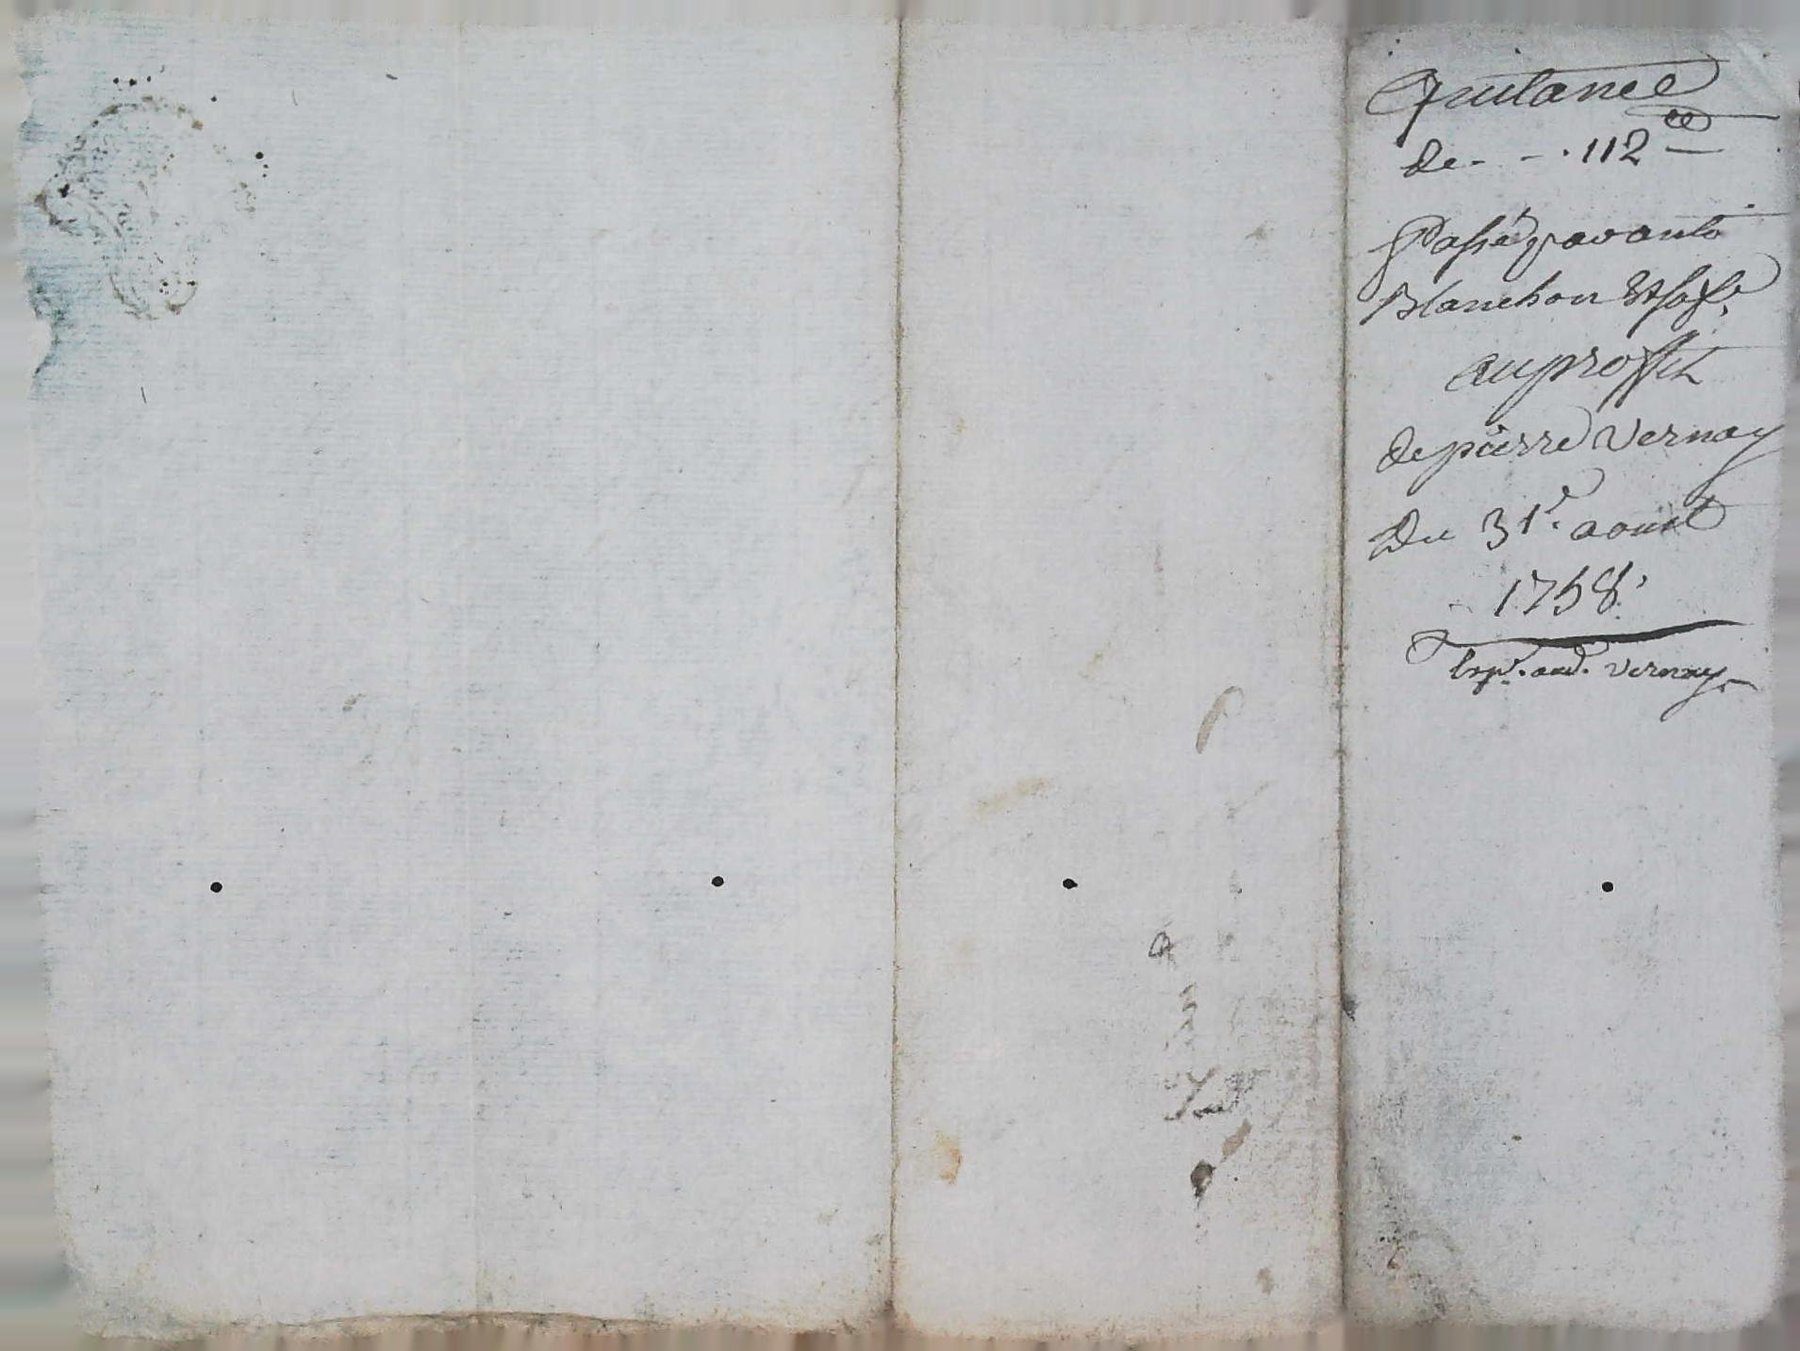 Quitance
de - - . 112 ll
Passé par
Blanchon
au proffit
de pierre Vernay
Du 31e. aoust
1758.
Exp. aud. Vernay